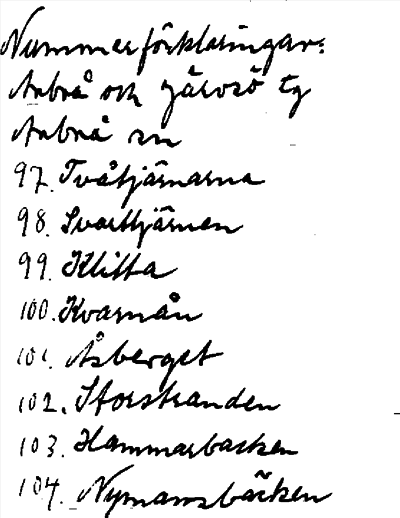 Nummerförklaringar:
Arbrå och Järvsö tg
Arbrå sn
97. Tvåtjärnarna
98. Svarttjärnen
99. Klitta
100. Kvarnån
101. Åsberget
102. Storstranden
103. Hammarbacken
104. Nymansbäcken